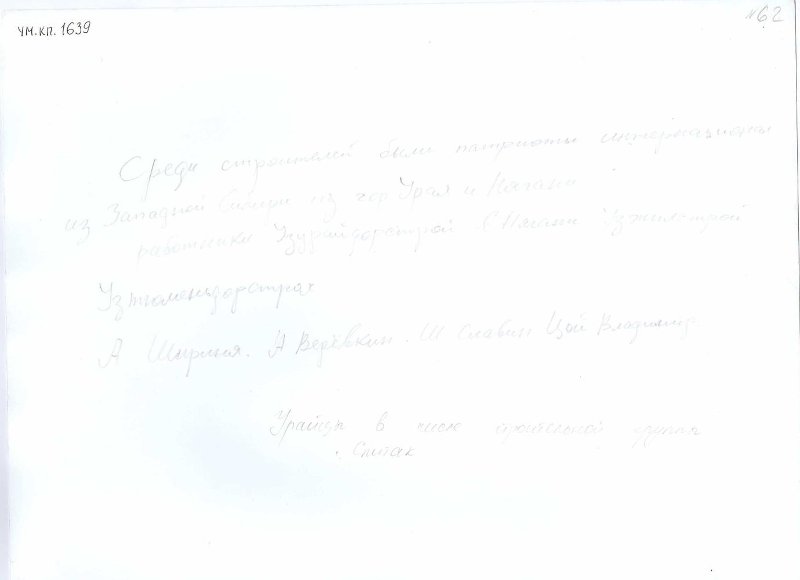 УМ.КП. 1639
№62
Среди строителей были патриоты интернационалы
из Западной Сибири из гор Урая и Нягани
работники Узурайдорстрой. С Нягани Узжилстрой
Узтюмендорстрах
А Ширяня. А Верёвкин. Ш Славин Цой Владимир
Урайцы в числе строительной группы
Спитак